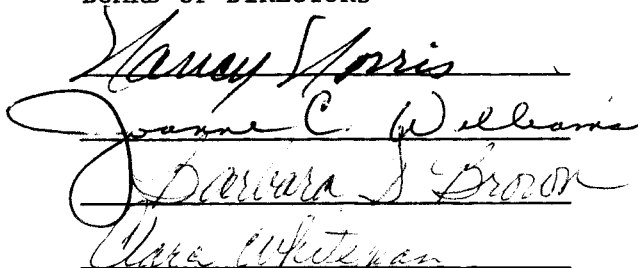 BOARD OF DIRECTORS
Nancy Norris
Joanne C. Williams
Barbara S Brown
Clara Whiteman